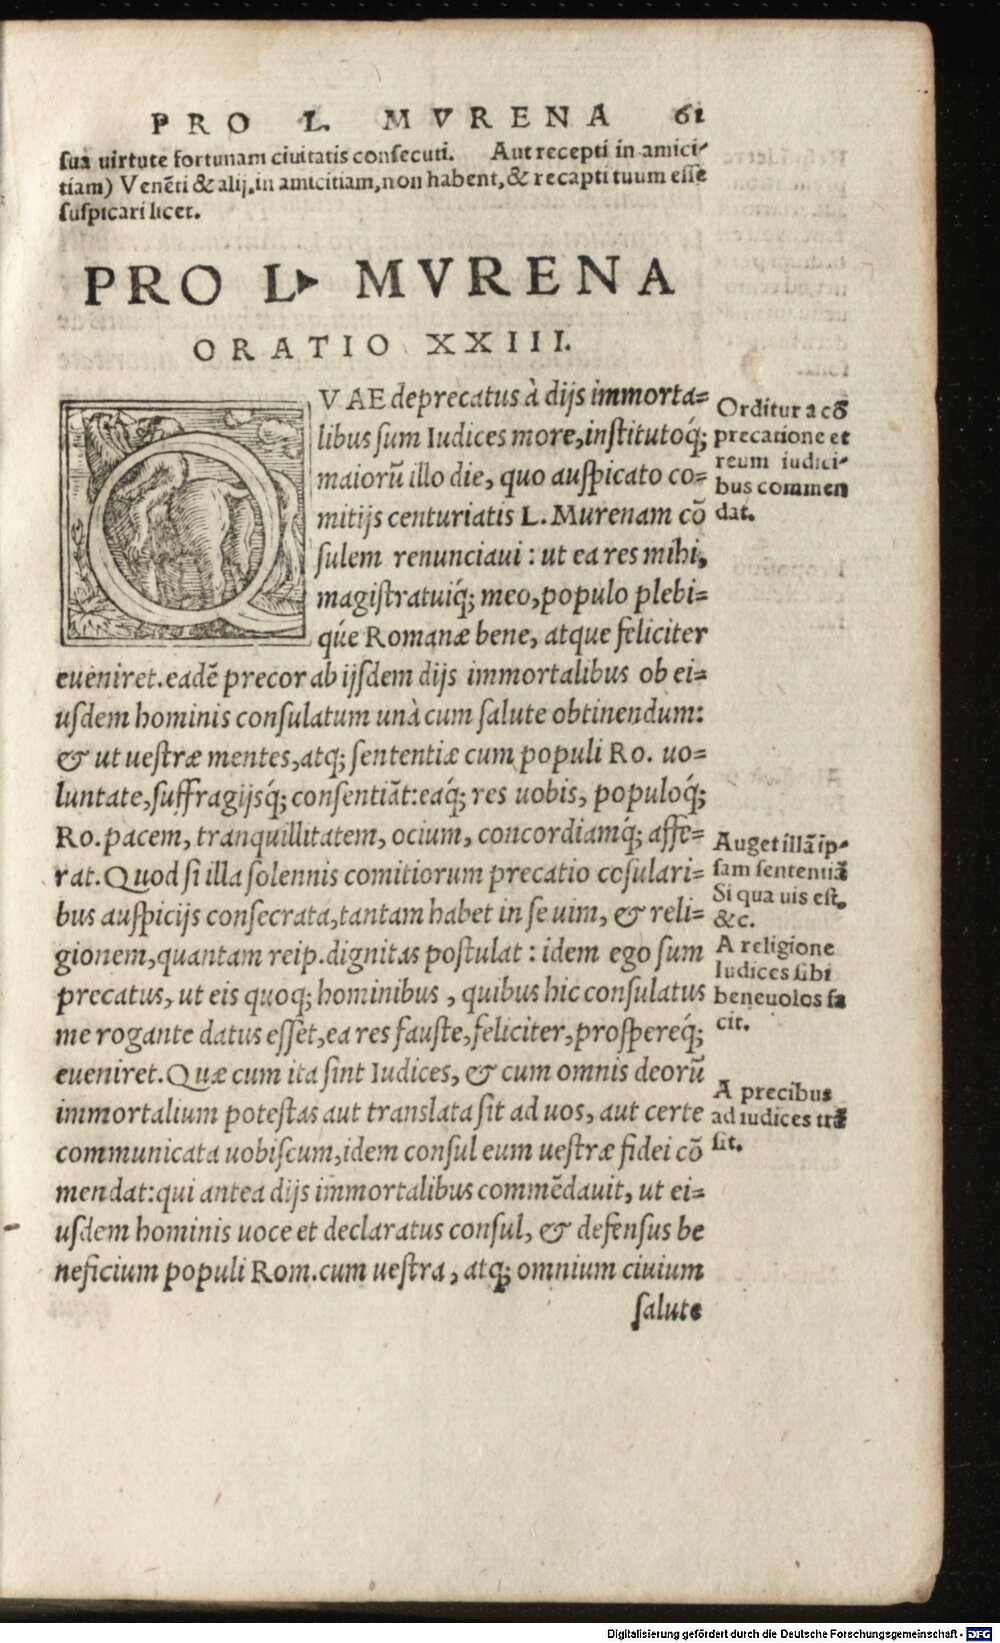 PRO L. MVRENA 61
sua uirtute fortunam ciuitatis consecuti. Aut recepti in amici-
tiam) Venẽti & alij, in amicitiam, non habent, & recapti tuum esse
suspicari licet.
PRO L. MVRENA
ORATIO XXIII.
QVAE deprecatus à dijs immorta=
libus sum Iudices more, institutoq́;
maiorũ illo die, quo auspicato co=
mitijs centuriatis L. Murenam cõ
sulem renunciaui : ut ea res mihi,
magistratuiq́; meo, populo plebi=
qúe Romanæ bene, atque feliciter
eueniret. eadẽ precor ab ijsdem dijs immortalibus ob ei=
usdem hominis consulatum unà cum salute obtinendum:
& ut uestræ mentes, atq; sententiæ cum populi Ro. uo=
luntate, suffragijsq́; consentiãt: eaq́; res uobis, populoq́;
Ro. pacem, tranquillitatem, ocium, concordiamq́; affe=
rat. Quod si illa solennis comitiorum precatio cõsulari=
bus auspicijs consecrata, tantam habet in se uim, & reli=
gionem, quantam reip. dignitas postulat : idem ego sum
precatus, ut eis quoq; hominibus , quibus hic consulatus
me rogante datus esset, ea res fauste, feliciter, prospereq́;
eueniret. Quæ cum ita sint Iudices, & cum omnis deorũ
immortalium potestas aut translata sit ad uos, aut certe
communicata uobiscum, idem consul eum uestræ fidei cõ
mendat: qui antea dijs immortalibus commẽdauit, ut ei=
usdem hominis uoce et declaratus consul, & defensus be
neficium populi Rom. cum uestra, atq; omnium ciuium
salute
Orditur a cõ
precatione et
reum iudici-
bus commen
dat.
Auget illã ip-
sam sententiã
Si qua uis est,
&c.
A religione
Iudices sibi
beneuolos fa
cit.
A precibus
ad iudices trã
sit.
Digitalisierung gefördert durch die Deutsche Forschungsgemeinschaft - DFG